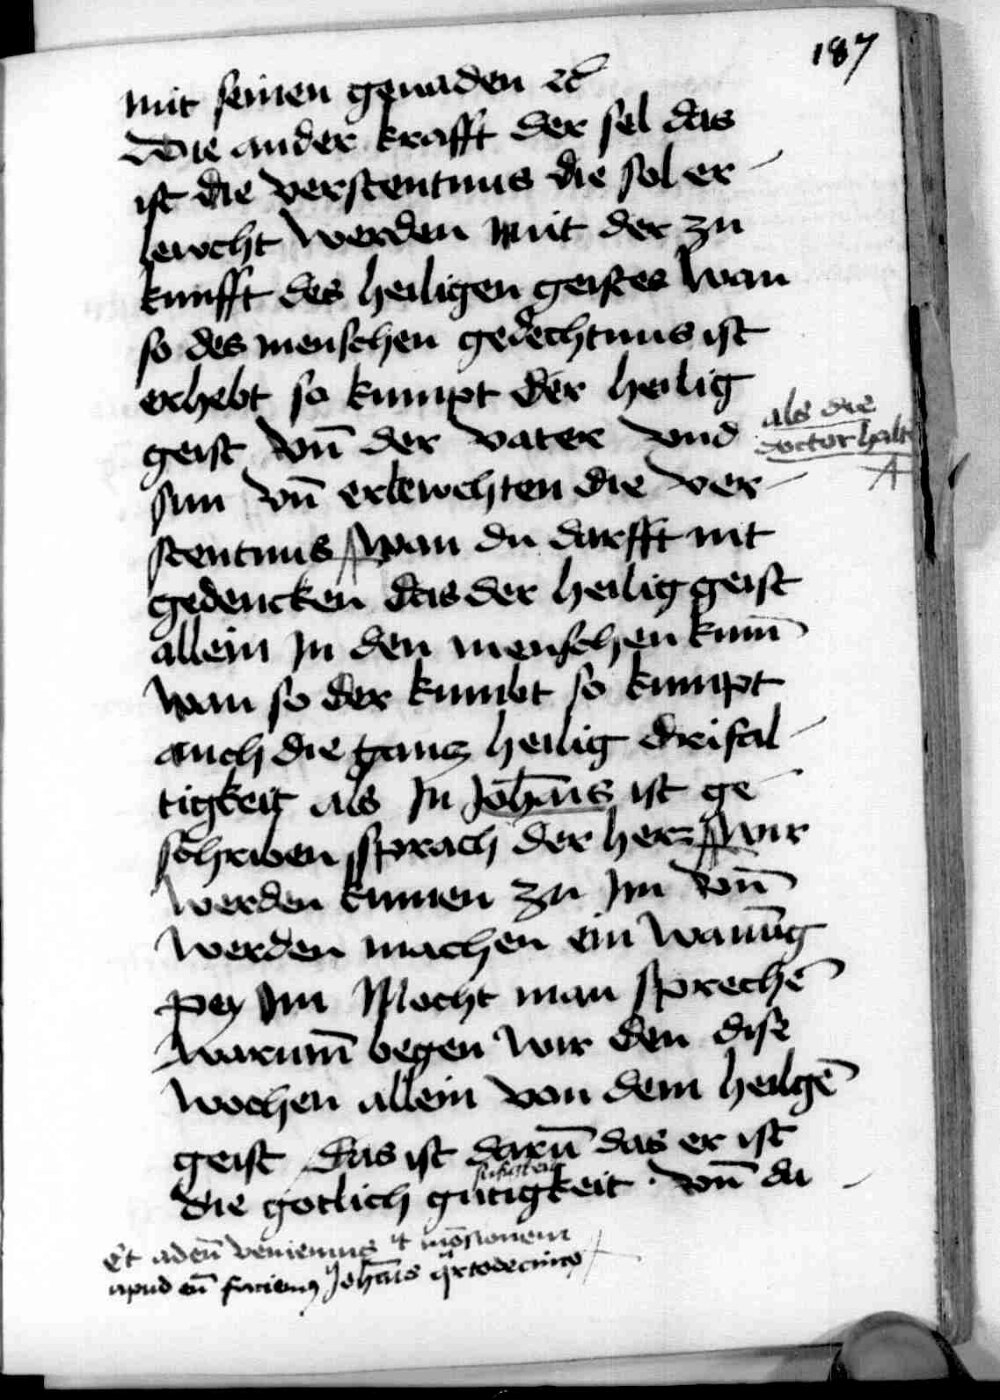 187
mit seinen genaden ꝛc̄
Die ander krafft der sel das
ist die verstentnus die sol er-
lewcht werden mit der zu
kunfft des heiligen geistes wan
so des menschen gedechtnus ist
erhebt so kumpt der heilig
geist vn̄ der vater vnd
als die
doctor halt
sun vn̄ erlewchten die ver-
stentnus wan du darfft nit
gedencken das der heilig geist
allein in den menschen kum̄
wan so der kumbt so kumpt
auch die gancz heilig drifal-
tigkeit als in Joha̅is ist ge-
schriben sprach der herr wir
werden kumen zu im vn̄
werden machen ein wanūg
pey im Mocht man sprechē
warum̄ begen wir den dise
wochen allein von dem heilgē
geist das ist darū das er ist
die gotlich gutigkeit · vn̄ da-
Et ad eū veniemus et māsionem
apud eū faciemꝰ Joha̅is qrtodecimo